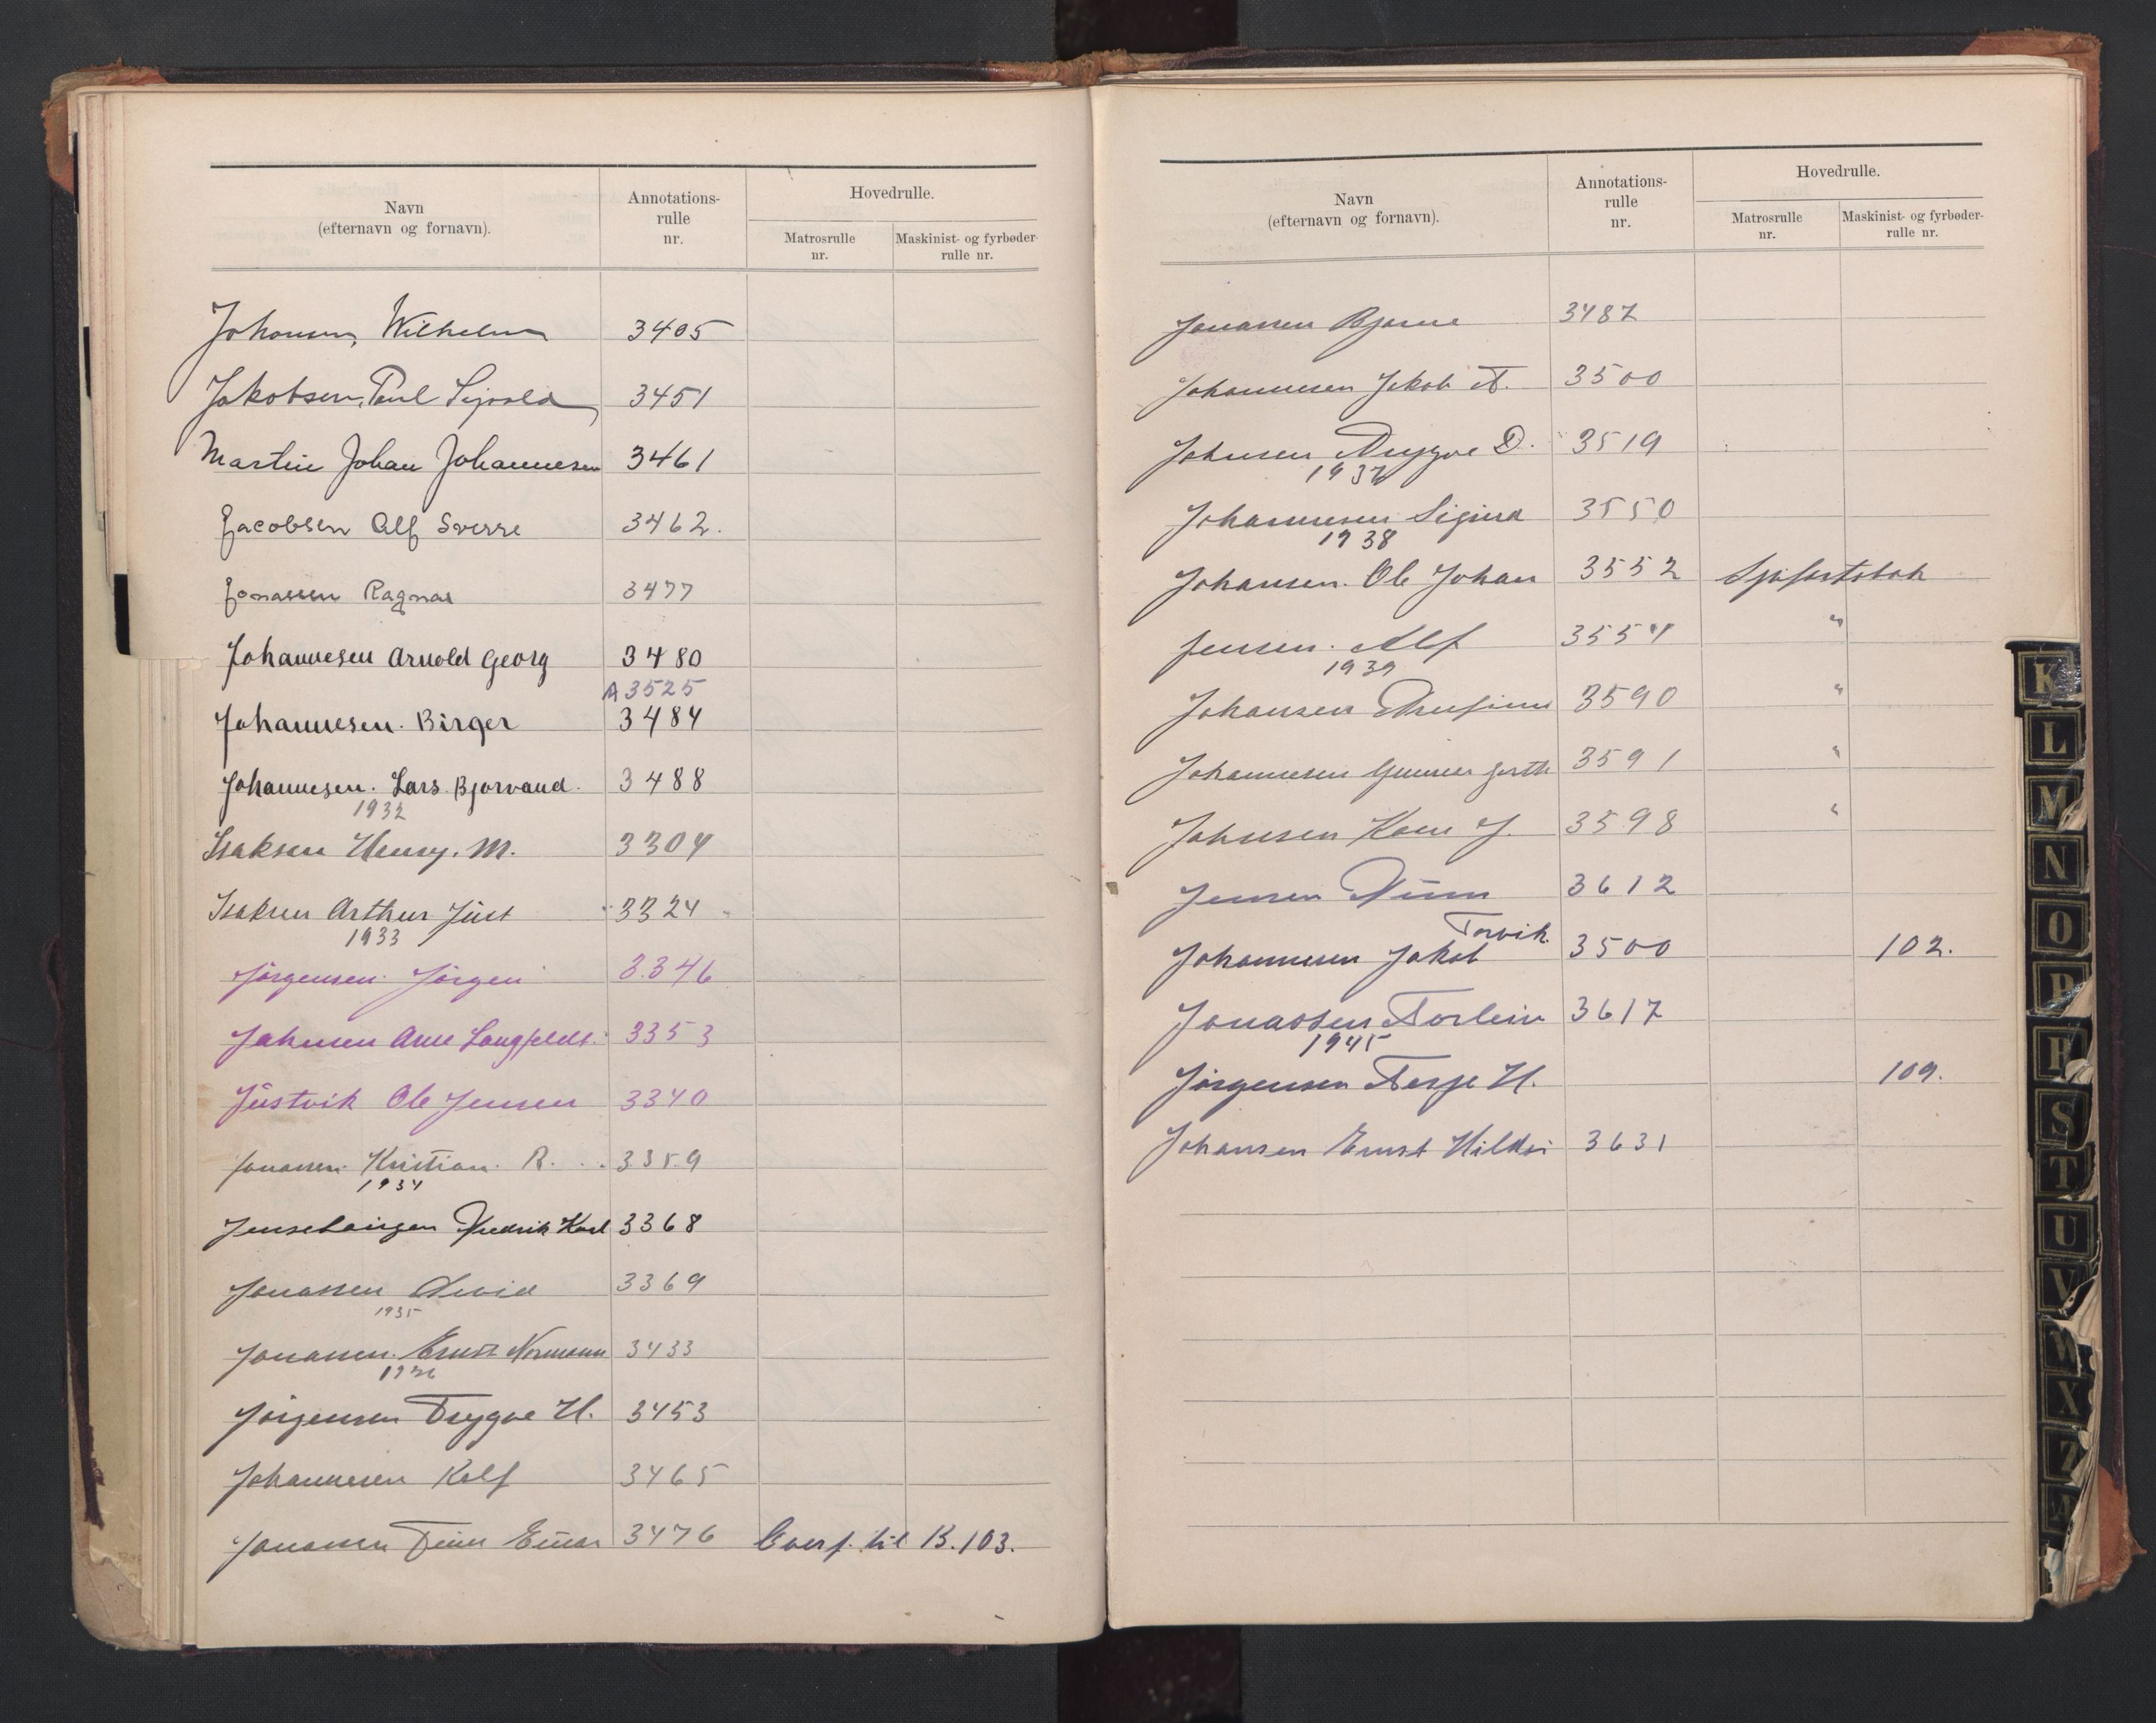 Navn
(efternavn og fornavn).
Annotations-
rulle
nr.
Hovedrulle.
Matrosrulle
nr.
Maskinist- og fyrbøder-
rulle nr.
Johansen, Wilhelm 3405
Jakobsen, Paul Sigvald 3451
Martin Johan Johannesen 3461
Jacobsen Alf Sverre 3462.
Jonassen Ragnar 3477
Johannesen Arnold Georg 3480
A 3525
Johannesen. Birger 3484
Johannesen. Lars. Bjorvand. 3488
1932
Isaksen Henry. M. 3304
Isaksen Arthur Just 3324
1933
Jörgensen. Jörgen 3346
Johnsen Arne Langfeldt. 3353
Jüstvik Ole Jensen 3340
Jonassen. Kristian. R. 3359
1934
Fredrik Karl 3368
Jonassen 3369
1935
Jonassen. Ernst Normann 3433
1936
Jörgensen Trygve H. 3453
Johannesen Rolf 3465
Jonassen Finn Einar 3476 Overf. til B. 103.
Navn
(efternavn og fornavn).
Annotations-
rulle
nr.
Hovedrulle.
Matrosrulle
nr.
Maskinist- og fyrbøder-
rulle nr.
Jonassen Bjarne 3487
Johannesen Jakob T. 3500
Johnsen Trygve D. 3519
1937
Johannesen Sigurd 3550
1938
Johansen. Ole Johan 3552 Sjøfartsbok
Jensen. Alf 3554 "
1939
Johansen 3590 "
Johannesen Gunnar 3591 "
Johnsen Kaare J. 3598 "
Jensen Finn 3612
Torvik.
Johannesen Jakob 3500 102.
Jonassen Torleiv 3617
1945
Jörgensen Terje H. 109.
Johansen Ernst 3631
K
L
M
N
O
P
R
S
T
U
V
W
X
Z